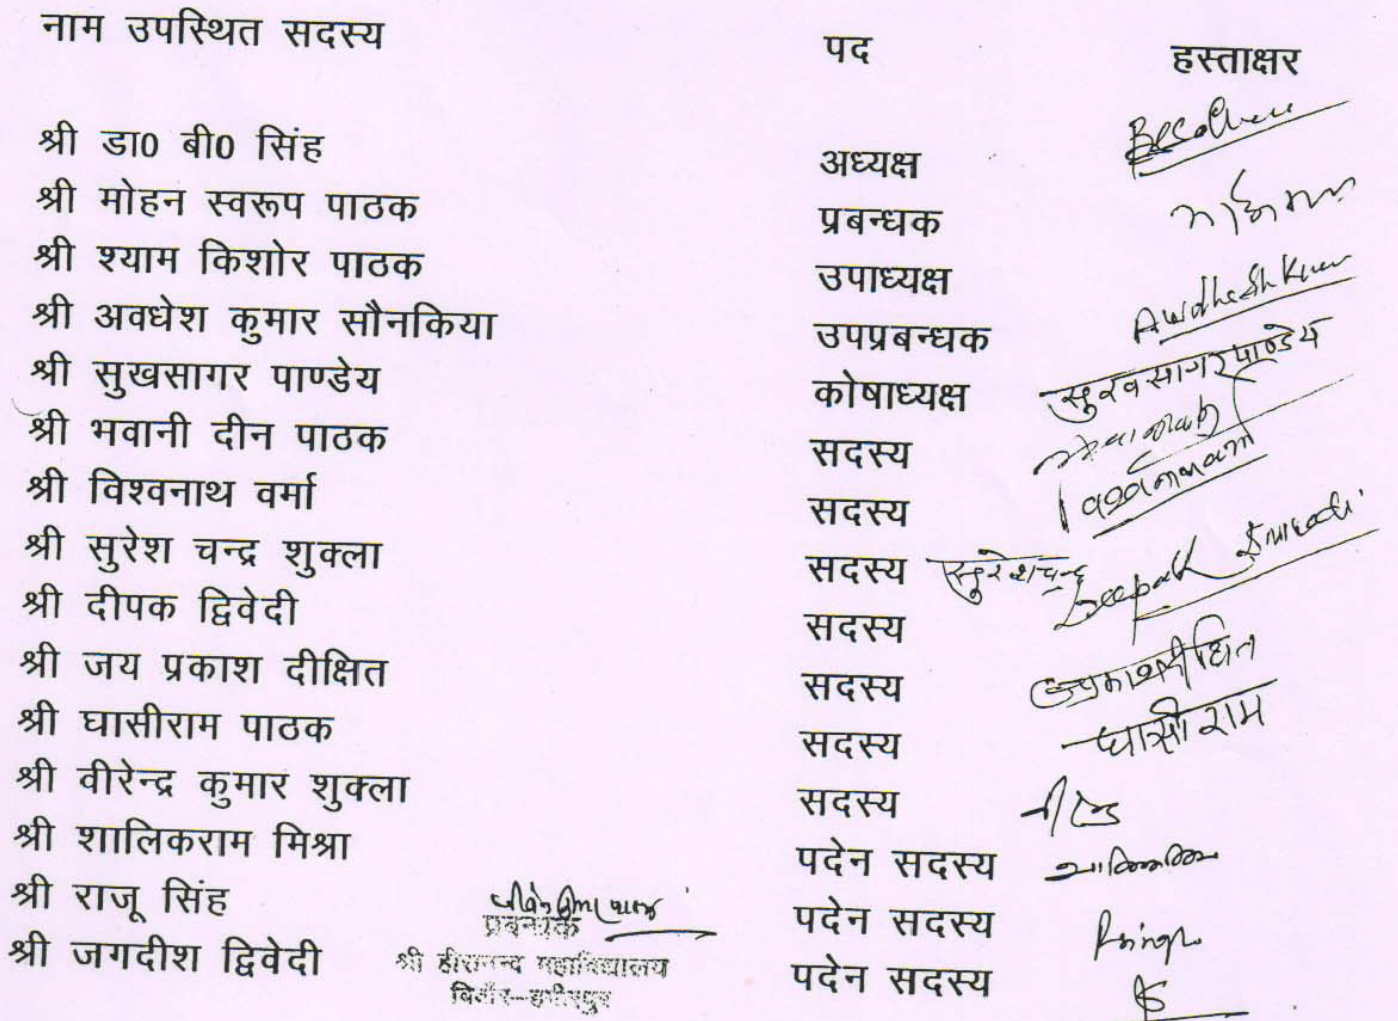 नाम उपस्थित सदस्य पद हस्ताक्षर
श्री डा0 बी0 सिंह अध्यक्ष
श्री मोहन स्वरूप पाठक प्रबन्धक
श्री श्याम किशोर पाठक उपाध्यक्ष
श्री अवधेश कुमार सौनकिया उपप्रबन्धक Awdhesh Kumar
श्री सुखसागर पाण्डेय कोषाध्यक्ष सुखसागर पाण्डेय
श्री भवानी दीन पाठक सदस्य
श्री विश्वनाथ वर्मा सदस्य
श्री सुरेश चन्द्र शुक्ला सदस्य सुरेशचन्द्र
श्री दीपक द्विवेदी सदस्य Deepak Dwivedi
श्री जय प्रकाश दीक्षित सदस्य
श्री घासीराम पाठक सदस्य घासीराम
श्री वीरेन्द्र कुमार शुक्ला सदस्य
श्री शालिकराम मिश्रा पदेन सदस्य
श्री राजू सिंह पदेन सदस्य
श्री जगदीश द्विवेदी पदेन सदस्य
प्रबन्धक
श्री हीरानन्द महाविद्यालय